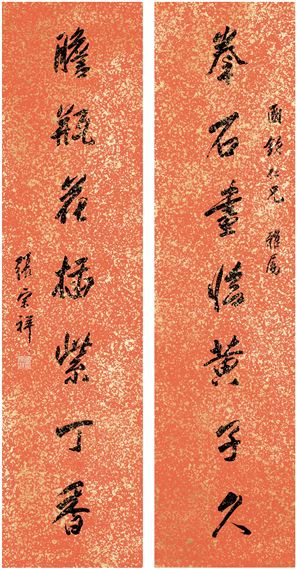 國 仁兄 雅屬
拳石畫 黃子久
膽瓶花插紫丁香
張宗祥